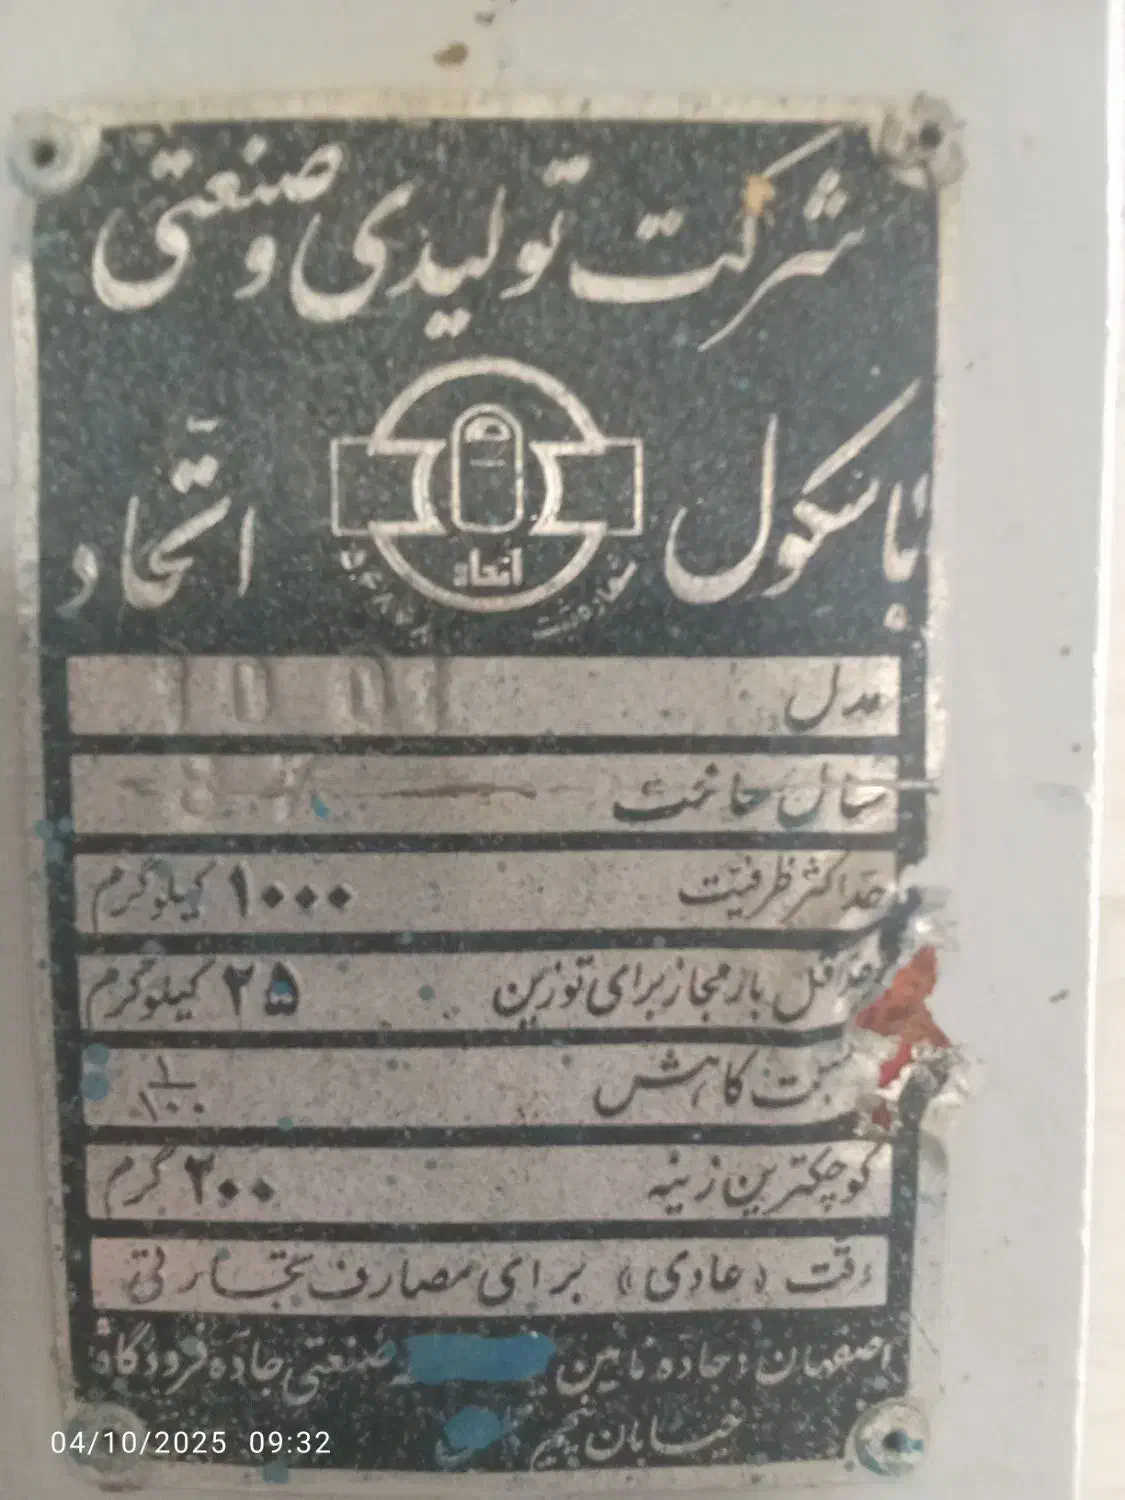 شرکت تولیدی و صنعتی
باسکول اتحاد
اتحاد
مدل 10 01
سال ساخت
حداکثر ظرفیت ۱۰۰۰ کیلوگرم
حداقل بار مجاز برای توزین ۲۵ کیلوگرم
نسبت کاهش ۱/۱۰۰
کوچکترین زینه ۲۰۰ گرم
دقت (عادی) برای مصارف تجارتی
اصفهان: جاده نایین صنعتی جاده فرودگاه
خیابان پنجم
04/10/2025 09:32